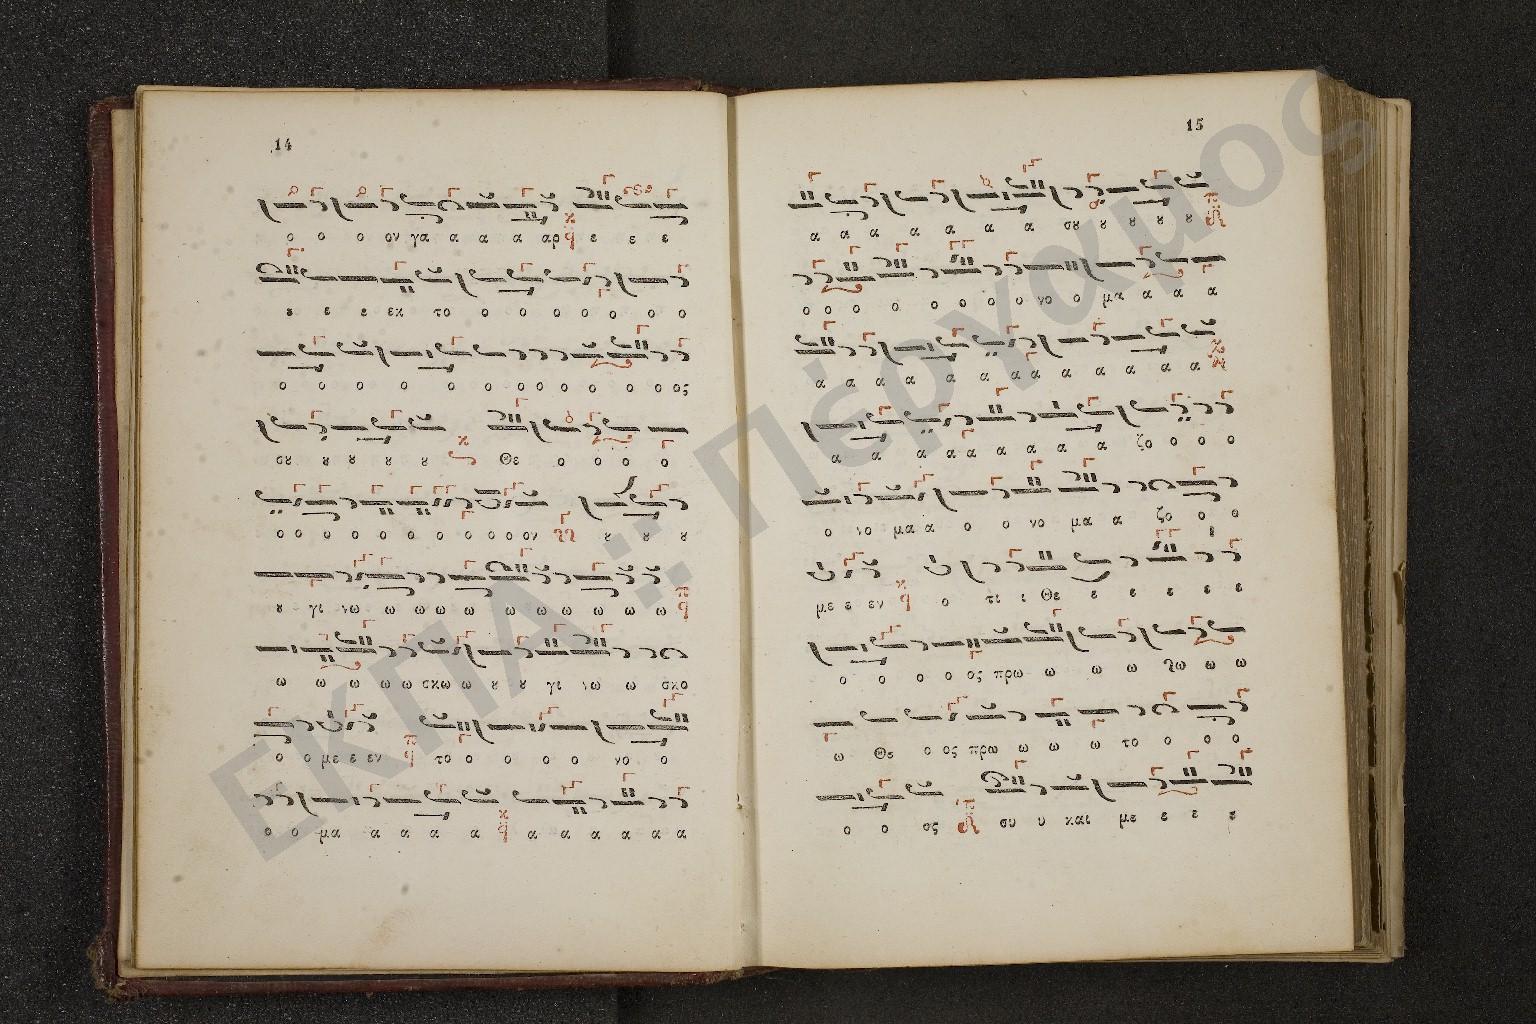 14
ο ο ο ον γα α α α αρ ε ε ε
ε ε ε εκ το ο ο ο ο ο ο ο
ο ο ο ο ο ο ο ο ο ο ο ο ος
σȣ ȣ ȣ ȣ ȣ Θε ο ο ο ο
ο ο ο ο ο ο ο ο ο ο ο ον ȣ ȣ ȣ
ȣ γι νω ω ω ω ω ω ω ω ω ω ω
ω ω ω ω ω σκω ω ȣ ȣ γι νω ω σκο
ο ο με ε εν το ο ο ο ο νο ο
ο ο μα α α α α α α α α α
15
α α α α α α α α σȣ ȣ ȣ ȣ ȣ
ο ο ο ο ο ο ο ο νο ο μα α α α
α α α α α α α α α α α α α
α α α α α α α α α ζο ο ο ο
ο νο μα α ο ο νο μα α ζο ο ο
με ε εν ο τι ι Θε ε ε ε ε ε
ο ο ο ο ος πρω ω ω ω ω ω
ω Θε ο ος πρω ω ω ω το ο ο ο
ο ο ος συ υ και με ε ε ε
ΕΚΠΑ :: Πέργαμος